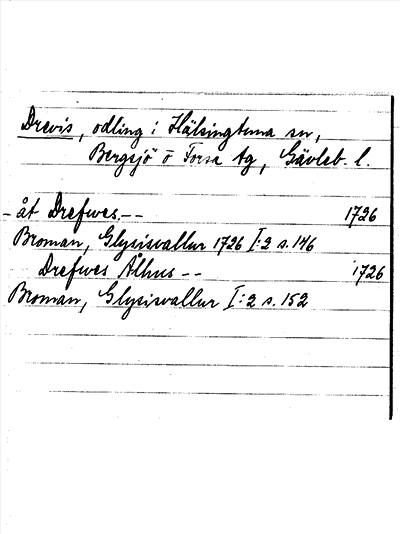 Drevis, odling i Hälsingtuna sn,
Bergsjö o Forsa tg, Gävleb. l.
- åt Drefwes -- 1726
Broman, Glysisvallur 1726 I:2 s. 146
Drefwes Ålhus -- 1726
Broman, Glysisvallur I:2 s. 152